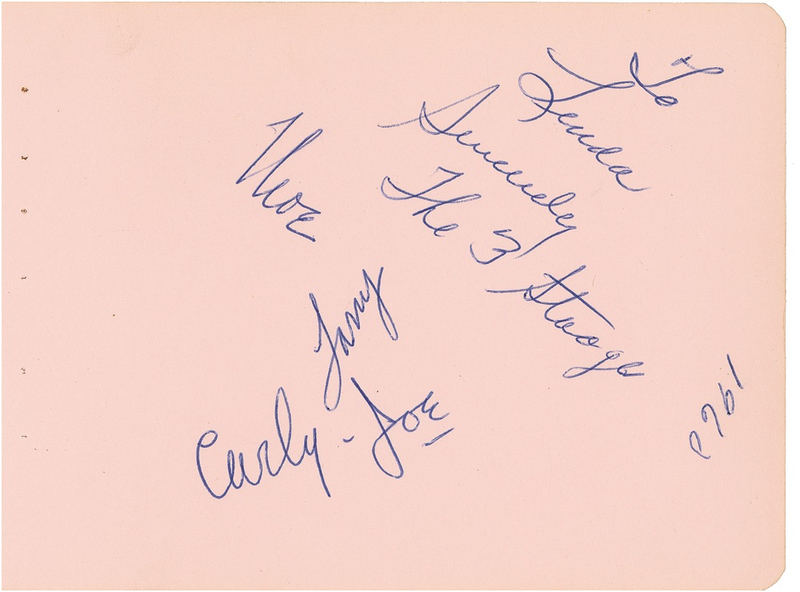 To
Linda
Sincerely
The 3 Stooges
Moe
Larry
Curly-Joe
1962